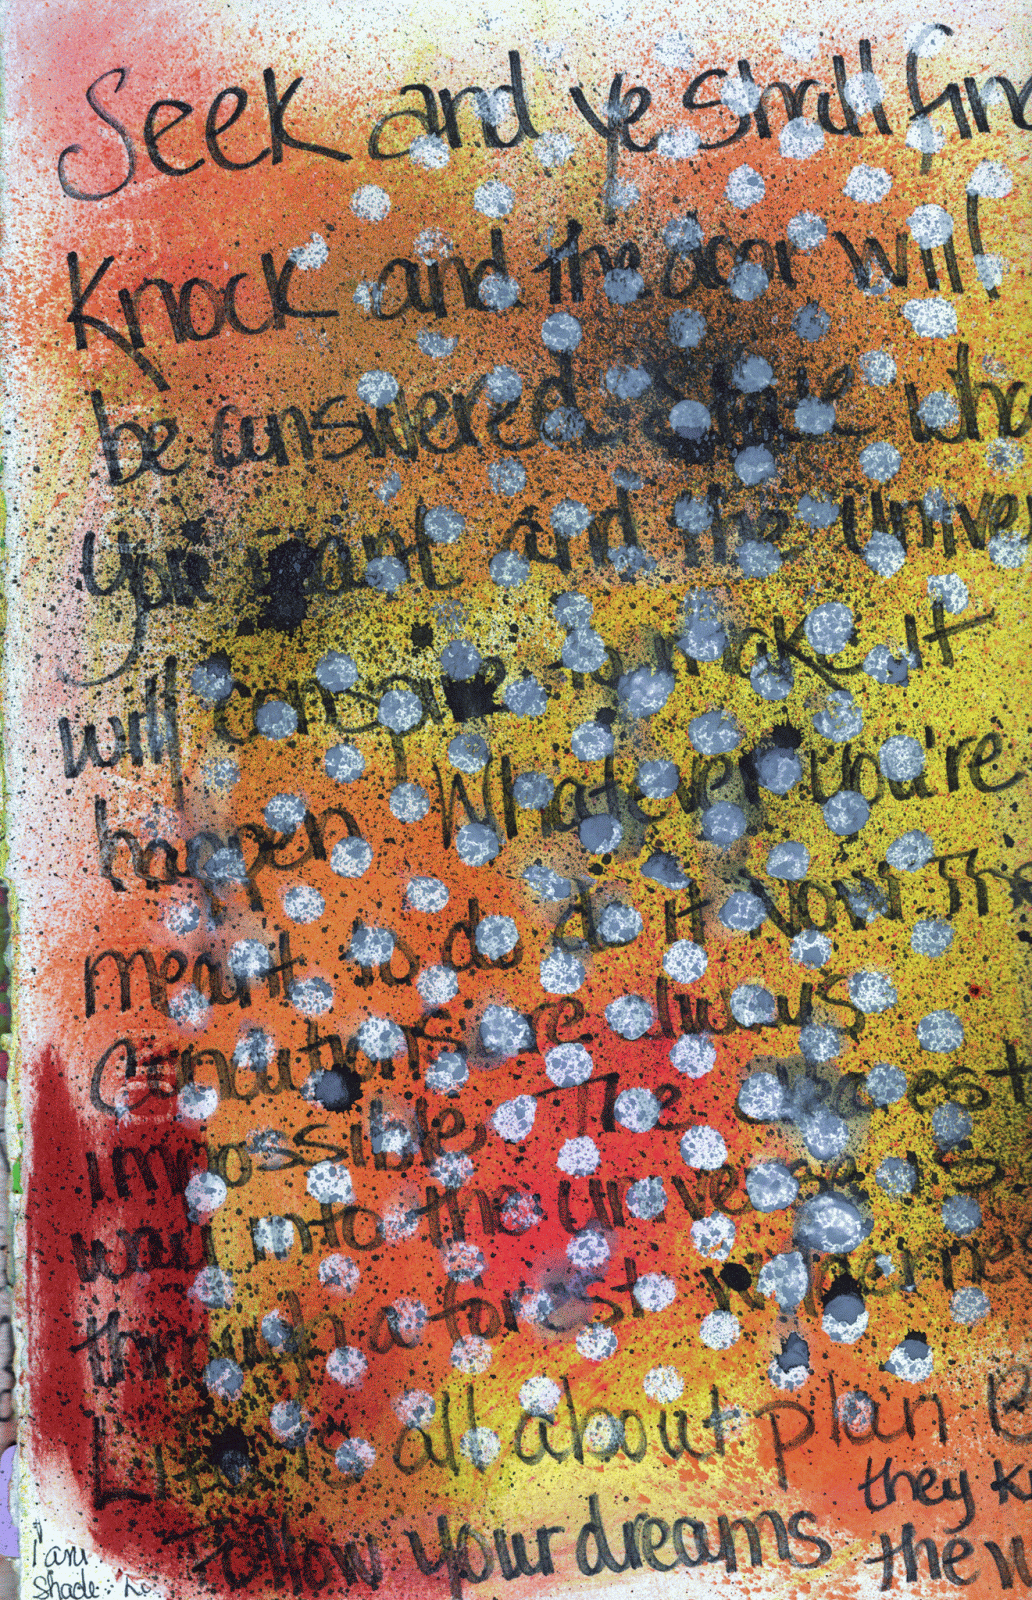 Seek and ye shall find
Knock and the door will
be answered. State wha
you want and the unive
will conspire to make it
happen. Whatever you're
meant to do do it now The
conditions are always
impossible The clearest
way into the universe is
through a forest wilderness
Life is all about plan B
Follow your dreams they k
the w
I am
shade